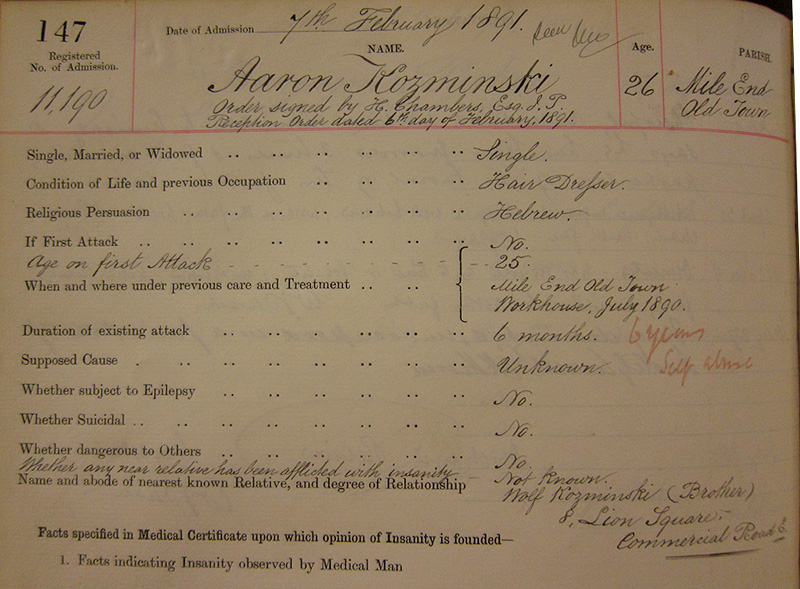 147
Registered
No. of Admission.
11,190
Date of Admission 7th February 1891.
NAME.
Age.
PARISH.
Aaron Kozminski
26
Mile End
Old Town
Order signed by H. Chambers, Esq. J. P.
Reception Order dated 6th day of February, 1891.
Single, Married, or Widowed .. .. .. .. .. .. Single.
Condition of Life and previous Occupation .. .. .. .. .. Hair Dresser.
Religious Persuasion .. .. .. .. .. .. .. Hebrew.
If First Attack .. .. .. .. .. .. .. .. No.
Age on first Attack - - - - - - - 25.
When and where under previous care and Treatment .. .. .. Mile End Old Town
Workhouse, July 1890.
Duration of existing attack .. .. .. .. .. .. 6 months. 6 years
Supposed Cause . .. .. .. .. .. .. .. Unknown. Self abuse
Whether subject to Epilepsy .. .. .. .. .. .. No.
Whether Suicidal .. .. .. .. .. .. .. .. No.
Whether dangerous to Others .. .. .. .. .. .. No.
Whether any near relative has been afflicted with insanity Not known.
Name and abode of nearest known Relative, and degree of Relationship Wolf Kozminski (Brother)
8, Lion Square,
Commercial Road E
Facts specified in Medical Certificate upon which opinion of Insanity is founded—
1. Facts indicating Insanity observed by Medical Man